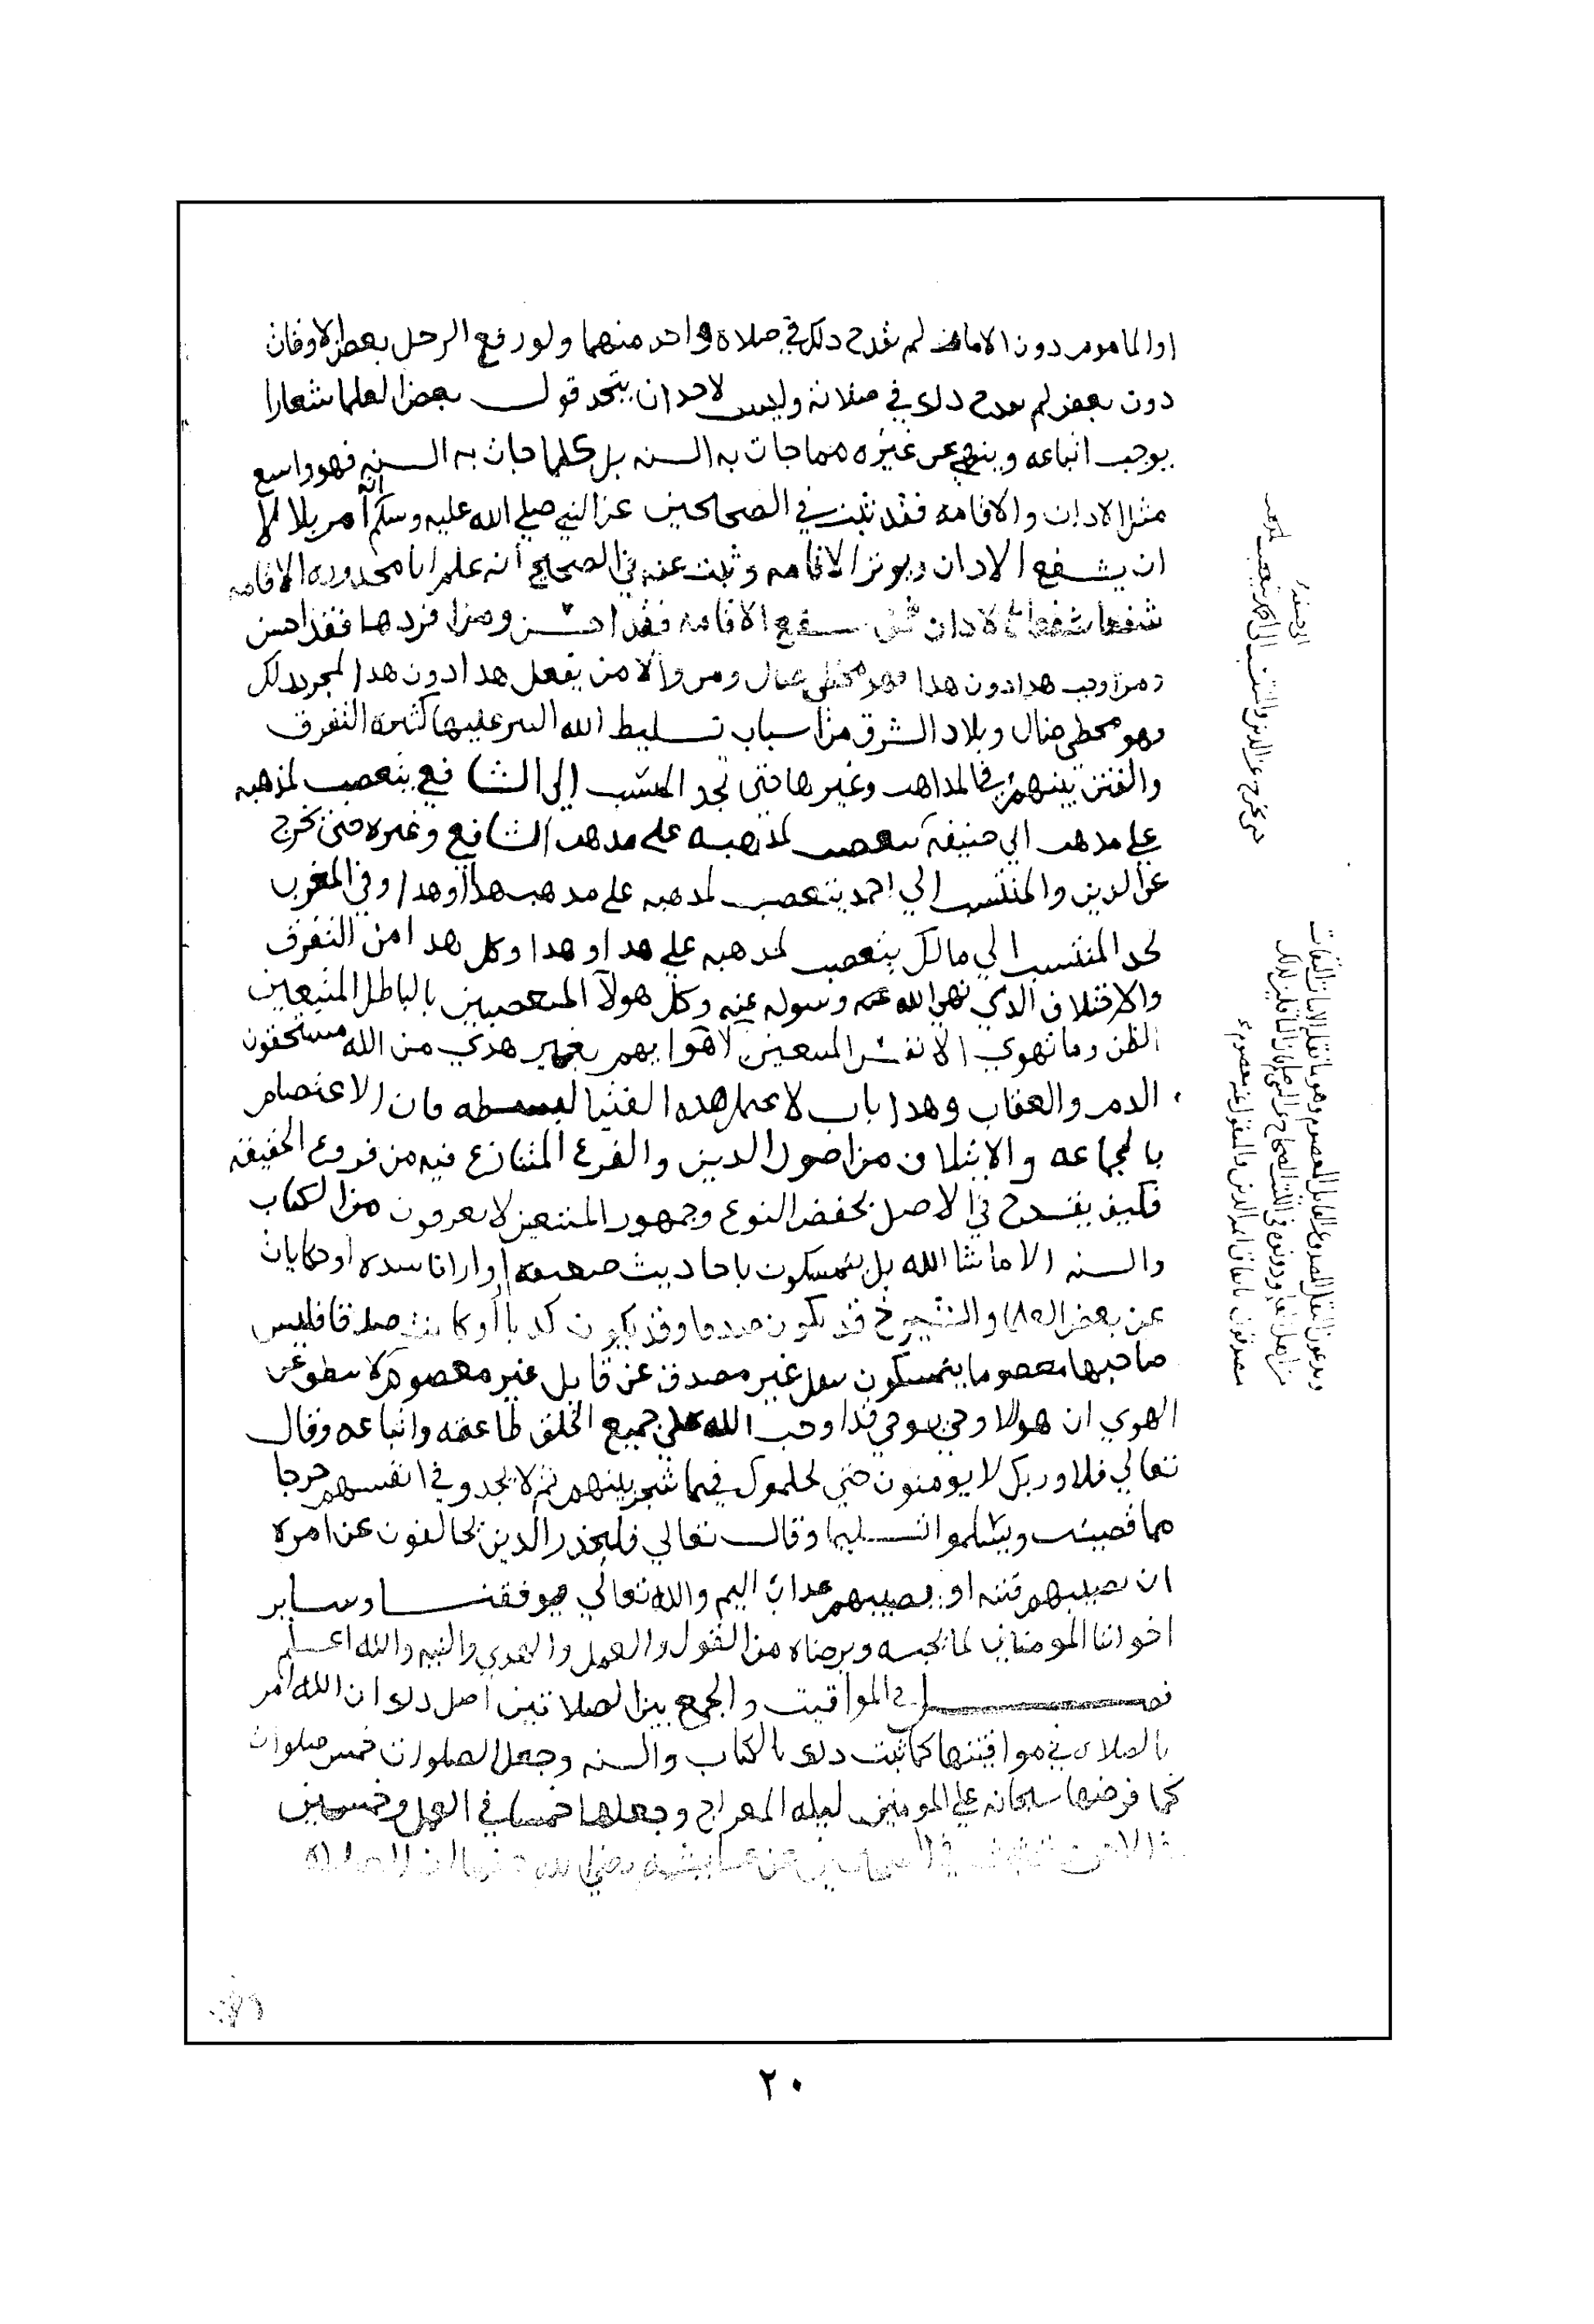 او الماموم دون الامام لم يقدح ذلك في صلاة واحد منهما ولو رفع الرجل بعض الاوقات
دون بعض لم يقدح ذلك في صلاته وليس لاحد ان يتخذ قول بعض العلما شعارا
يوجب اتباعه وينهي عن غيره مما جات به السنه بل كلما جات به السنه فهو واسع
مثل الاذان والاقامه فقد ثبت في الصحيحين عن النبي صلي الله عليه وسلم انه امر بلالا
ان يشفع الاذان ويوتر الاقامه وثبت عنه في الصحيح انه علم ابا محذوره الاقامه
شفعا شفعا كالاذان فمن شفع الاقامه فقد احسن ومن افردها فقد احسن
ومن اوجب هذا دون هذا فهو مخطي ضال ومن والا من يفعل هذا دون هذا لمجرد ذلك
فهو مخطي ضال وبلاد الشرق من اسباب تسليط الله التتر عليها كثرة التفرق
والفتن بينهم في المذاهب وغيرها حتى تجد المنتسب الي الشافعي يتعصب لمذهبه
علي مذهب ابي حنيفة يتعصب لمذهبه على مذهب الشافعي وغيره حتى يخرج
عن الدين والمنتسب الي احمد يتعصب لمذهبه على مذهب هذا او هذا وفي المغرب
تجد المنتسب الي مالك يتعصب لمذهبه علي هذا او هذا وكل هذا من التفرق
والاختلاف الذي نهي الله عنه ورسوله عنه وكل هولآ المتعصبين بالباطل المتبعين
الظن وما تهوي الانفس المتبعين لاهوايهم بغير هدي من الله مستحقون
الذم والعقاب وهذا باب لا تحتمل هذه الفتيا لبسطه فان الاعتصام
بالجماعه والايتلاف من اصول الدين والفرع المتنازع فيه من فروع الخفيفه
فكيف يقدح في الاصل بحفظ النوع وجمهور المتعصبين لا يعرفون من الكتاب
والسنه الا ما شا الله بل يتمسكون باحاديث ضعيفه او ارا فاسده او حكايات
عن بعض العلما والشيوخ قد يكون صدقا وقد يكون كذبا او كانت صدقا فليس
صاحبها معصوما يتمسكون بنقل غير مصدق عن قايل غير معصوم لا ينطق عن
الهوي ان هو الا وحي يوحي قد اوجب الله على جميع الخلق طاعته واتباعه وقال
تعالي فلا وربك لا يومنون حتى يحكموك فيما شجر بينهم ثم لا يجدوا في انفسهم حرجا
مما قضيت ويسلموا تسليما وقال تعالي فليحذر الذين يخالفون عن امره
ان تصيبهم فتنه او يصيبهم عذاب اليم والله تعالي يوفقنا وساير
اخواننا المومنين لما يحبه ويرضاه من القول والعمل والهدي والنيه والله اعلم
فصل في المواقيت والجمع بين الصلاتين اصل ذلك ان الله امر
بالصلاه في مواقيتها كما ثبت ذلك بالكتاب والسنه وجعل الصلوات خمس صلوات
كما فرضها سبحانه علي المومنين ليله المعراج وجعلها خمسا في العمل وخمسين
ابي حنيفة
حتى يخرج عن الدين والمنتسب الي
ويدعون النقل المصدق عن القايل المعصوم وهو ما نقله الاثبات الثقات
من اهل العلم ودونوه في الكتب الصحاح عن النبي
مصدقون باتفاق ايمه الدين والمنقول عنه معصوم
٢٠